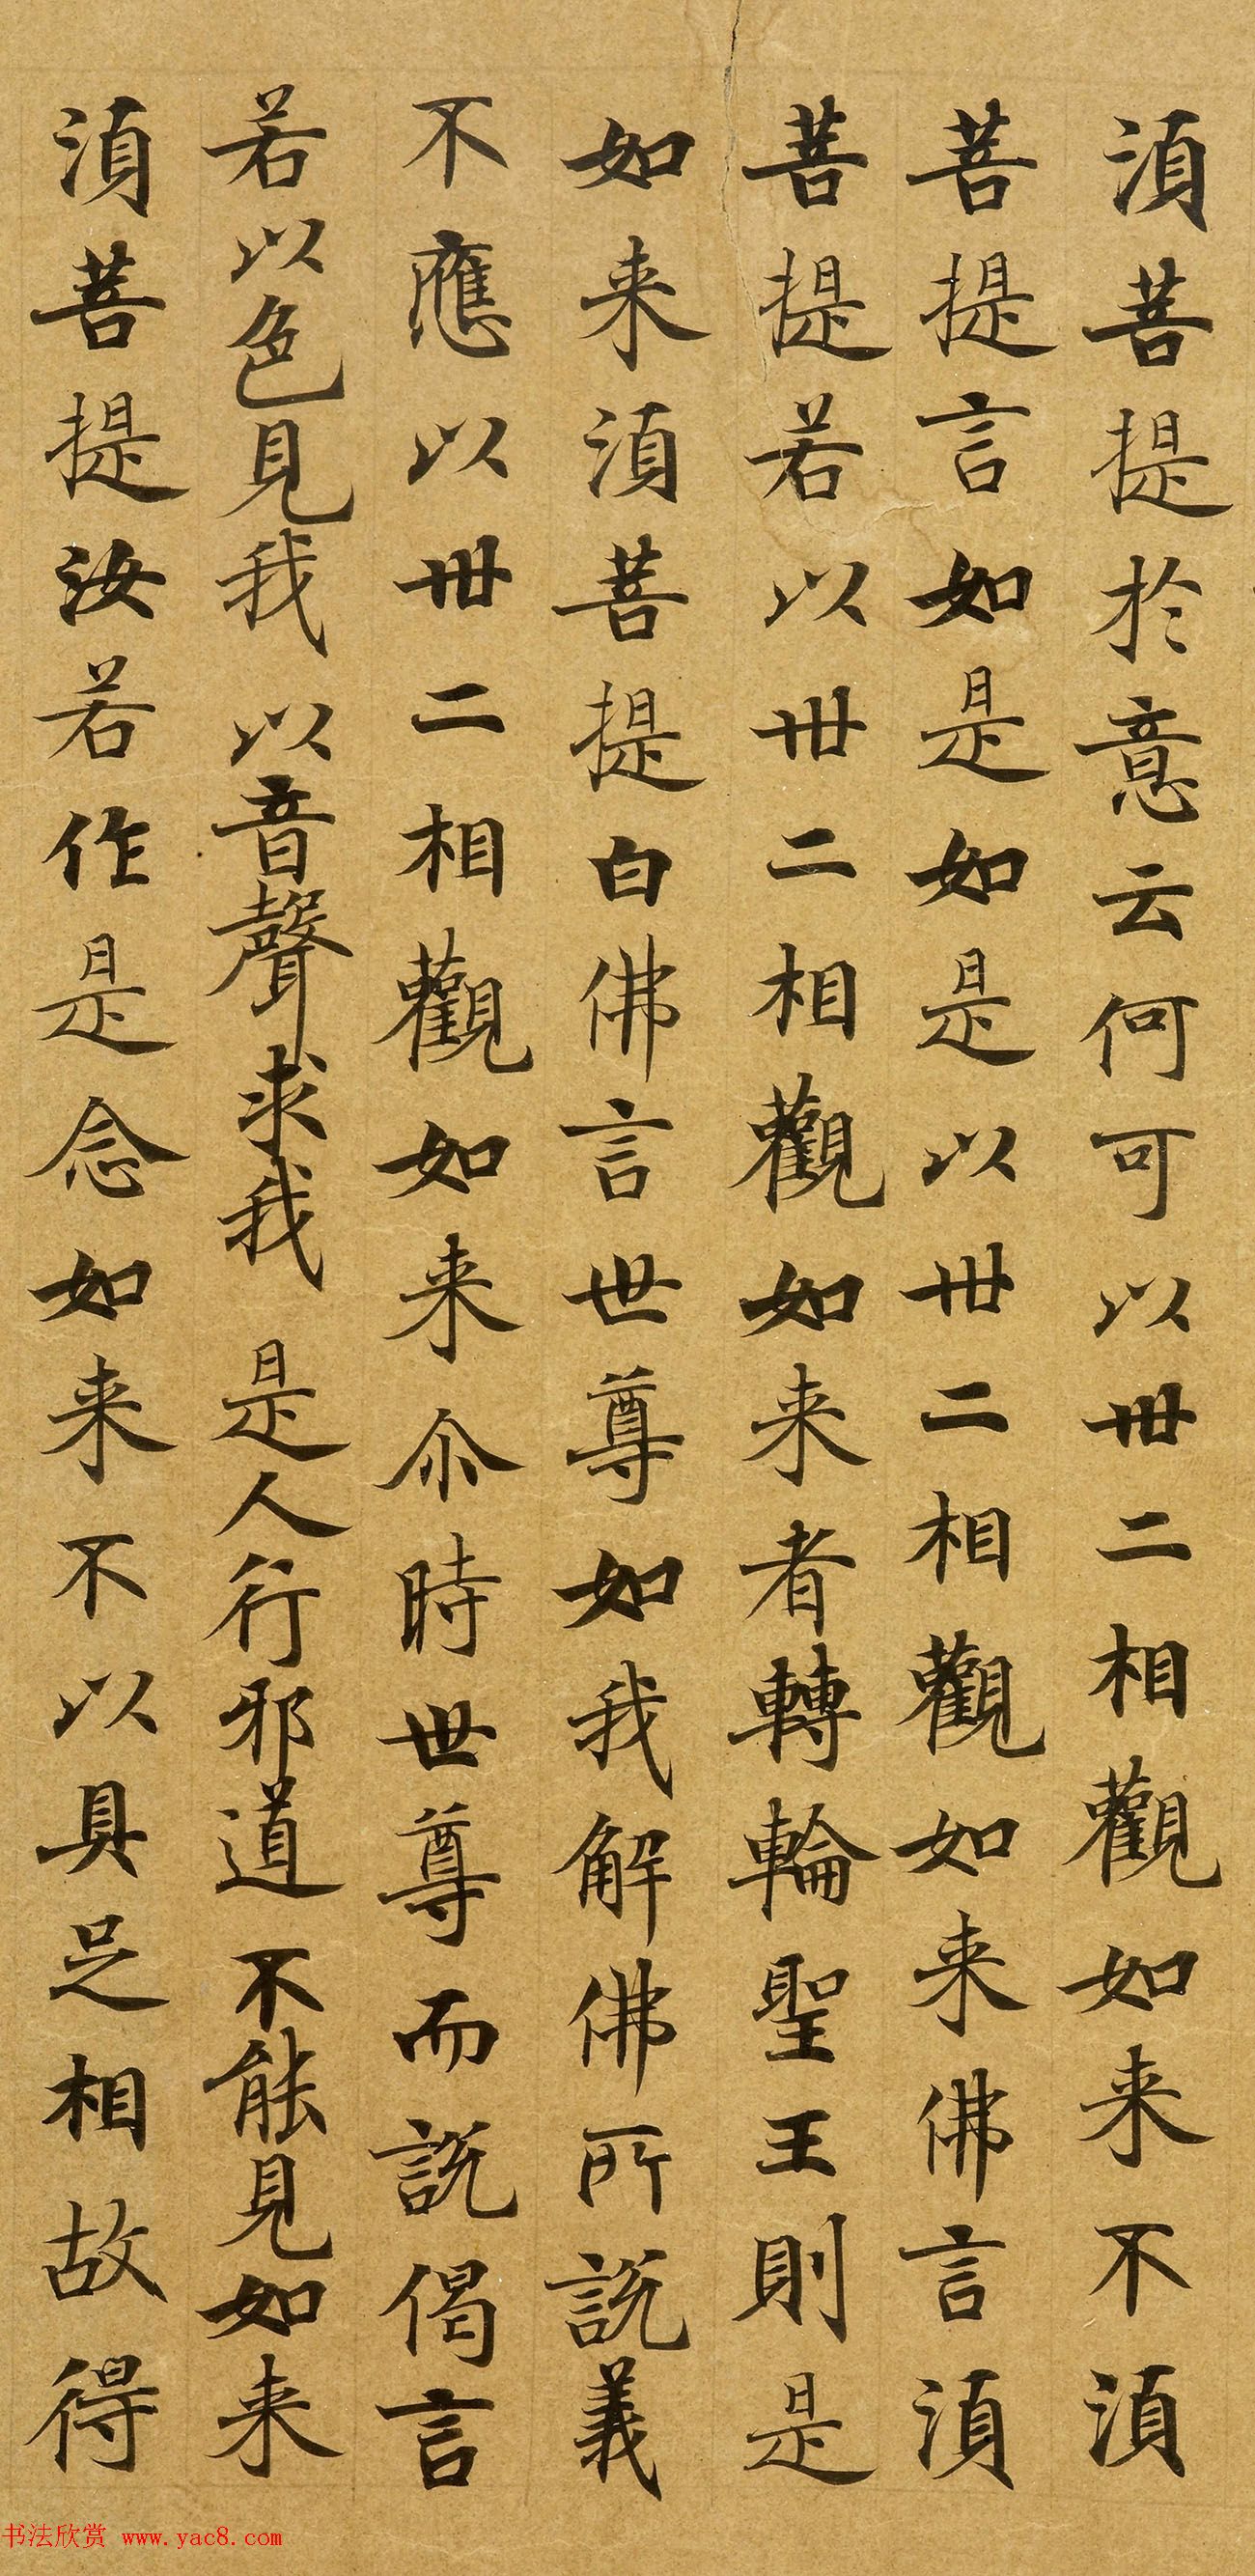 湏菩提於意云何可以卅二相觀如来不湏
菩提言如是如是以卅二相觀如来佛言湏
菩提若以卅二相觀如来者轉輪聖王則是
如来湏菩提白佛言世尊如我解佛所説義
不應以卅二相觀如来尒時世尊而説偈言
若以色見我 以音聲求我 是人行邪道 不能見如来
湏菩提汝若作是念如来不以具足相故得
书法欣赏 www.yac8.com